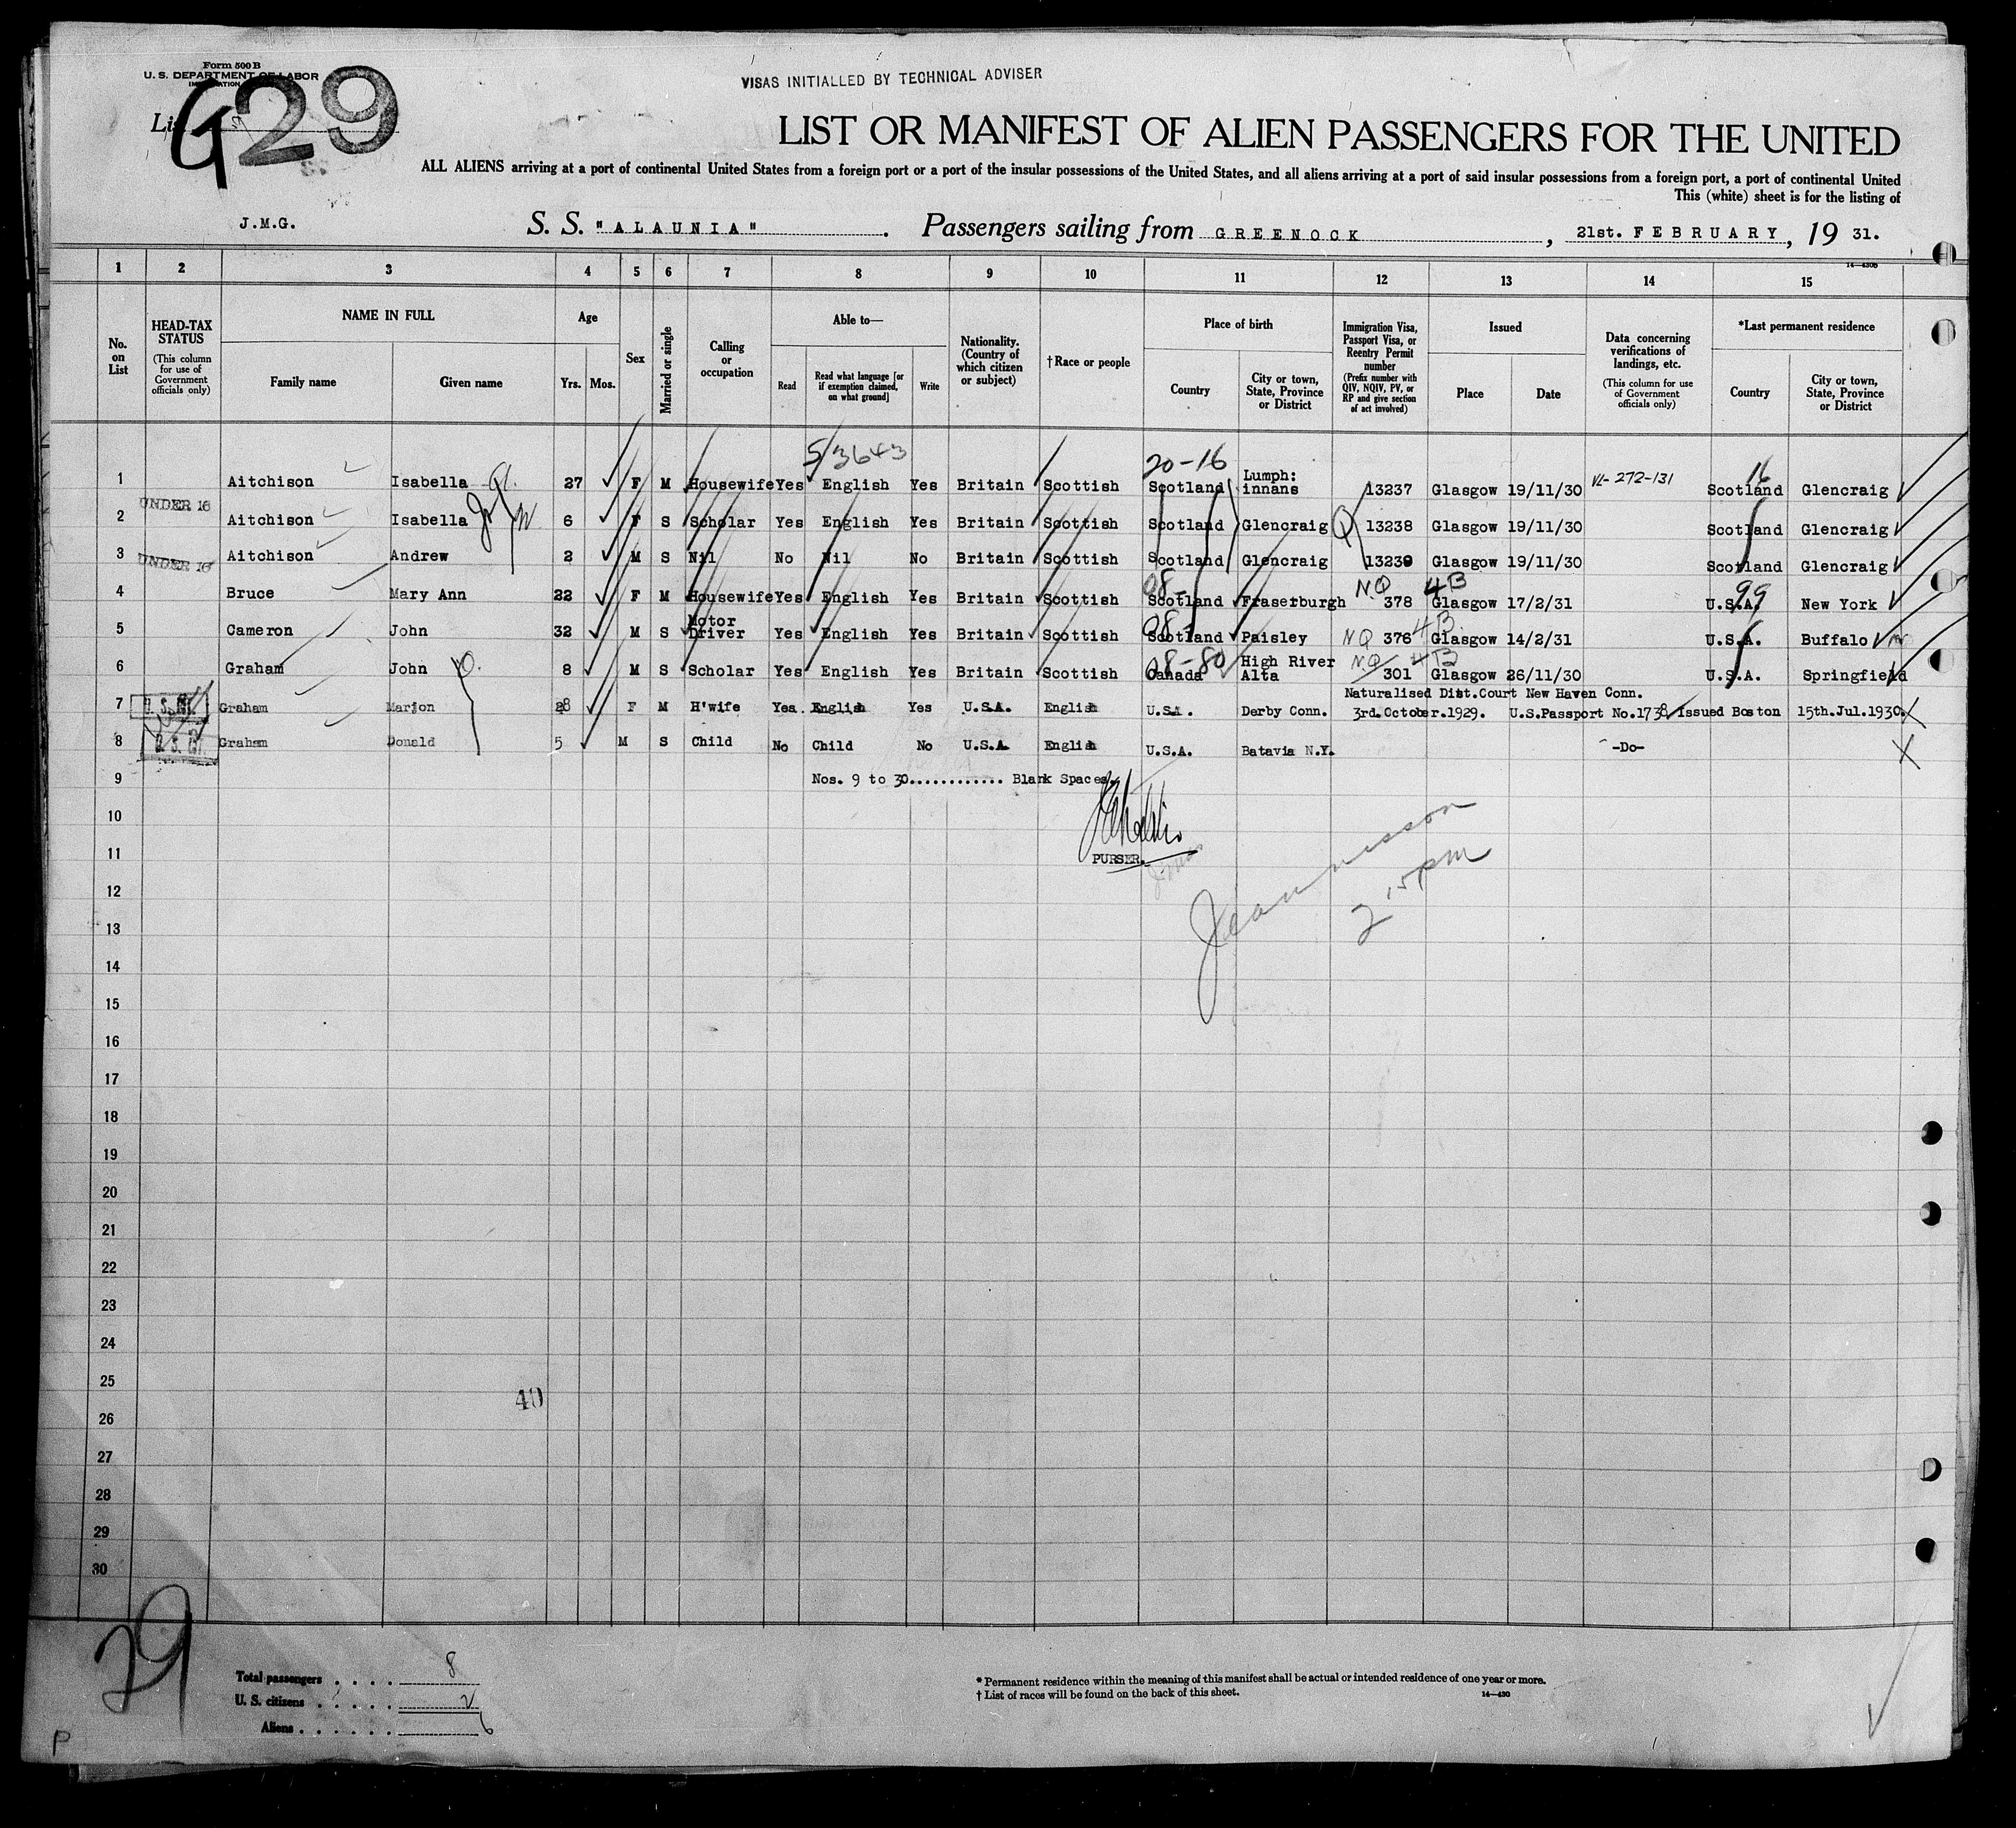 Form 500 B
U. S. DEPARTMENT OF LABOR
G 29
VISAS INITIALLED BY TECHNICAL ADVISER
LIST OR MANIFEST OF ALIEN PASSENGERS FOR THE UNITED
ALL ALIENS arriving at a port of continental United States from a foreign port or a port of the insular possessions of the United States, and all aliens arriving at a port of said insular possessions from a foreign port, a port of continental United
This (white) sheet is for the listing of
J.M.G. S. S. "ALAUNIA". Passengers sailing from GREENOCK, 21st. FEBRUARY, 19 31.
14—430B
1 2 3 4 5 6 7 8 9 10 11 12 13 14 15
No. on List
HEAD-TAX STATUS (This column for use of Government officials only)
NAME IN FULL Family name Given name
Age Yrs. Mos.
Sex
Married or single
Calling or occupation
Able to— Read Read what language [or if exemption claimed, on what ground] Write
Nationality. (Country of which citizen or subject)
†Race or people
Place of birth Country City or town, State, Province or District
Immigration Visa, Passport Visa, or Reentry Permit number (Prefix number with QIV, NQIV, PV, or RP and give section of act involved)
Issued Place Date
Data concerning verifications of landings, etc. (This column for use of Government officials only)
*Last permanent residence Country City or town, State, Province or District
5/3643 20-16
1 Aitchison Isabella 27 F M Housewife Yes English Yes Britain Scottish Scotland Lumph: innans 13237 Glasgow 19/11/30 VL-272-131 16 Scotland Glencraig
2 UNDER 16 Aitchison Isabella 6 F S Scholar Yes English Yes Britain Scottish Scotland Glencraig Q 13238 Glasgow 19/11/30 Scotland Glencraig
3 UNDER 16 Aitchison Andrew 2 M S Nil No Nil No Britain Scottish Scotland Glencraig 13239 Glasgow 19/11/30 Scotland Glencraig
08- NQ 4B 99
4 Bruce Mary Ann 22 F M Housewife Yes English Yes Britain Scottish Scotland Fraserburgh 378 Glasgow 17/2/31 U.S.A. New York
5 Cameron John 32 M S Motor Driver Yes English Yes Britain Scottish 08- Scotland Paisley NQ 376 4B Glasgow 14/2/31 U.S.A. Buffalo
6 Graham John 8 M S Scholar Yes English Yes Britain Scottish 08-80 Canada High River Alta NQ 301 4B Glasgow 26/11/30 U.S.A. Springfield
Naturalised Dist.Court New Haven Conn.
7 Graham Marion 28 F M H'wife Yes English Yes U.S.A. English U.S.A. Derby Conn. 3rd.October.1929. U.S.Passport Issued Boston 15th.Jul.1930.
8 Graham Donald 5 M S Child No Child No U.S.A. English U.S.A. Batavia N.Y. -Do-
9 Nos. 9 to 30............ Blank Spaces.
10
11 PURSER.
12
2.15pm
13
14
15
16
17
18
19
20
21
22
23
24
25
40
26
27
28
29
30
29
Total passengers . . . . 8
U. S. citizens . . . . . 2
Aliens . . . . . . 6
* Permanent residence within the meaning of this manifest shall be actual or intended residence of one year or more.
† List of races will be found on the back of this sheet.
14—430
P